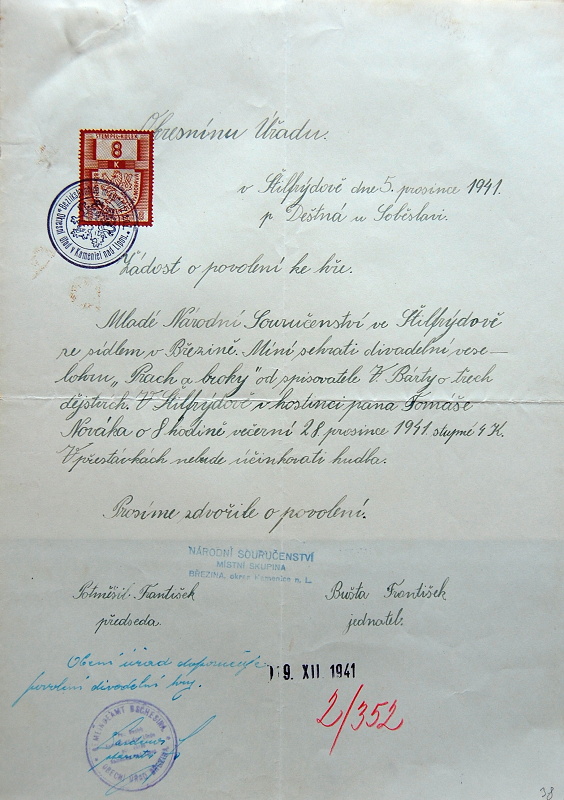 Okresnímu Úřadu.
STEMPEL-KOLEK
8
K
v Štilfrýdově dne 5. prosince 1941.
p. Deštná u Soběslavi.
Okresní úřad v Kamenici nad Lipou
Žádost o povolení ke hře.
Mladé Národní Souručenství ve Štilfrýdově
se sídlem v Březině. Míní sehrati divadelní vese-
lohru „Prach a broky" od spisovatele V. Bárty o třech
dějstvích. V Štilfrýdově v hostinci pana Tomáše
Nováka o 8 hodině večerní 28 prosince 1941. stupmé 4 K.
V přestávkách nebude účinkovati hudba.
Prosíme zdvořile o povolení.
NÁRODNÍ SOURUČENSTVÍ
MÍSTNÍ SKUPINA
BŘEZINA, okres Kamenice n. L.
Potměšil František Bušta František
předseda. jednatel.
Obecní úřad doporučuje
povolení divadelní hry.
9. XII 1941
2/352
GEMEINDEAMT
OBECNÍ ÚŘAD
38